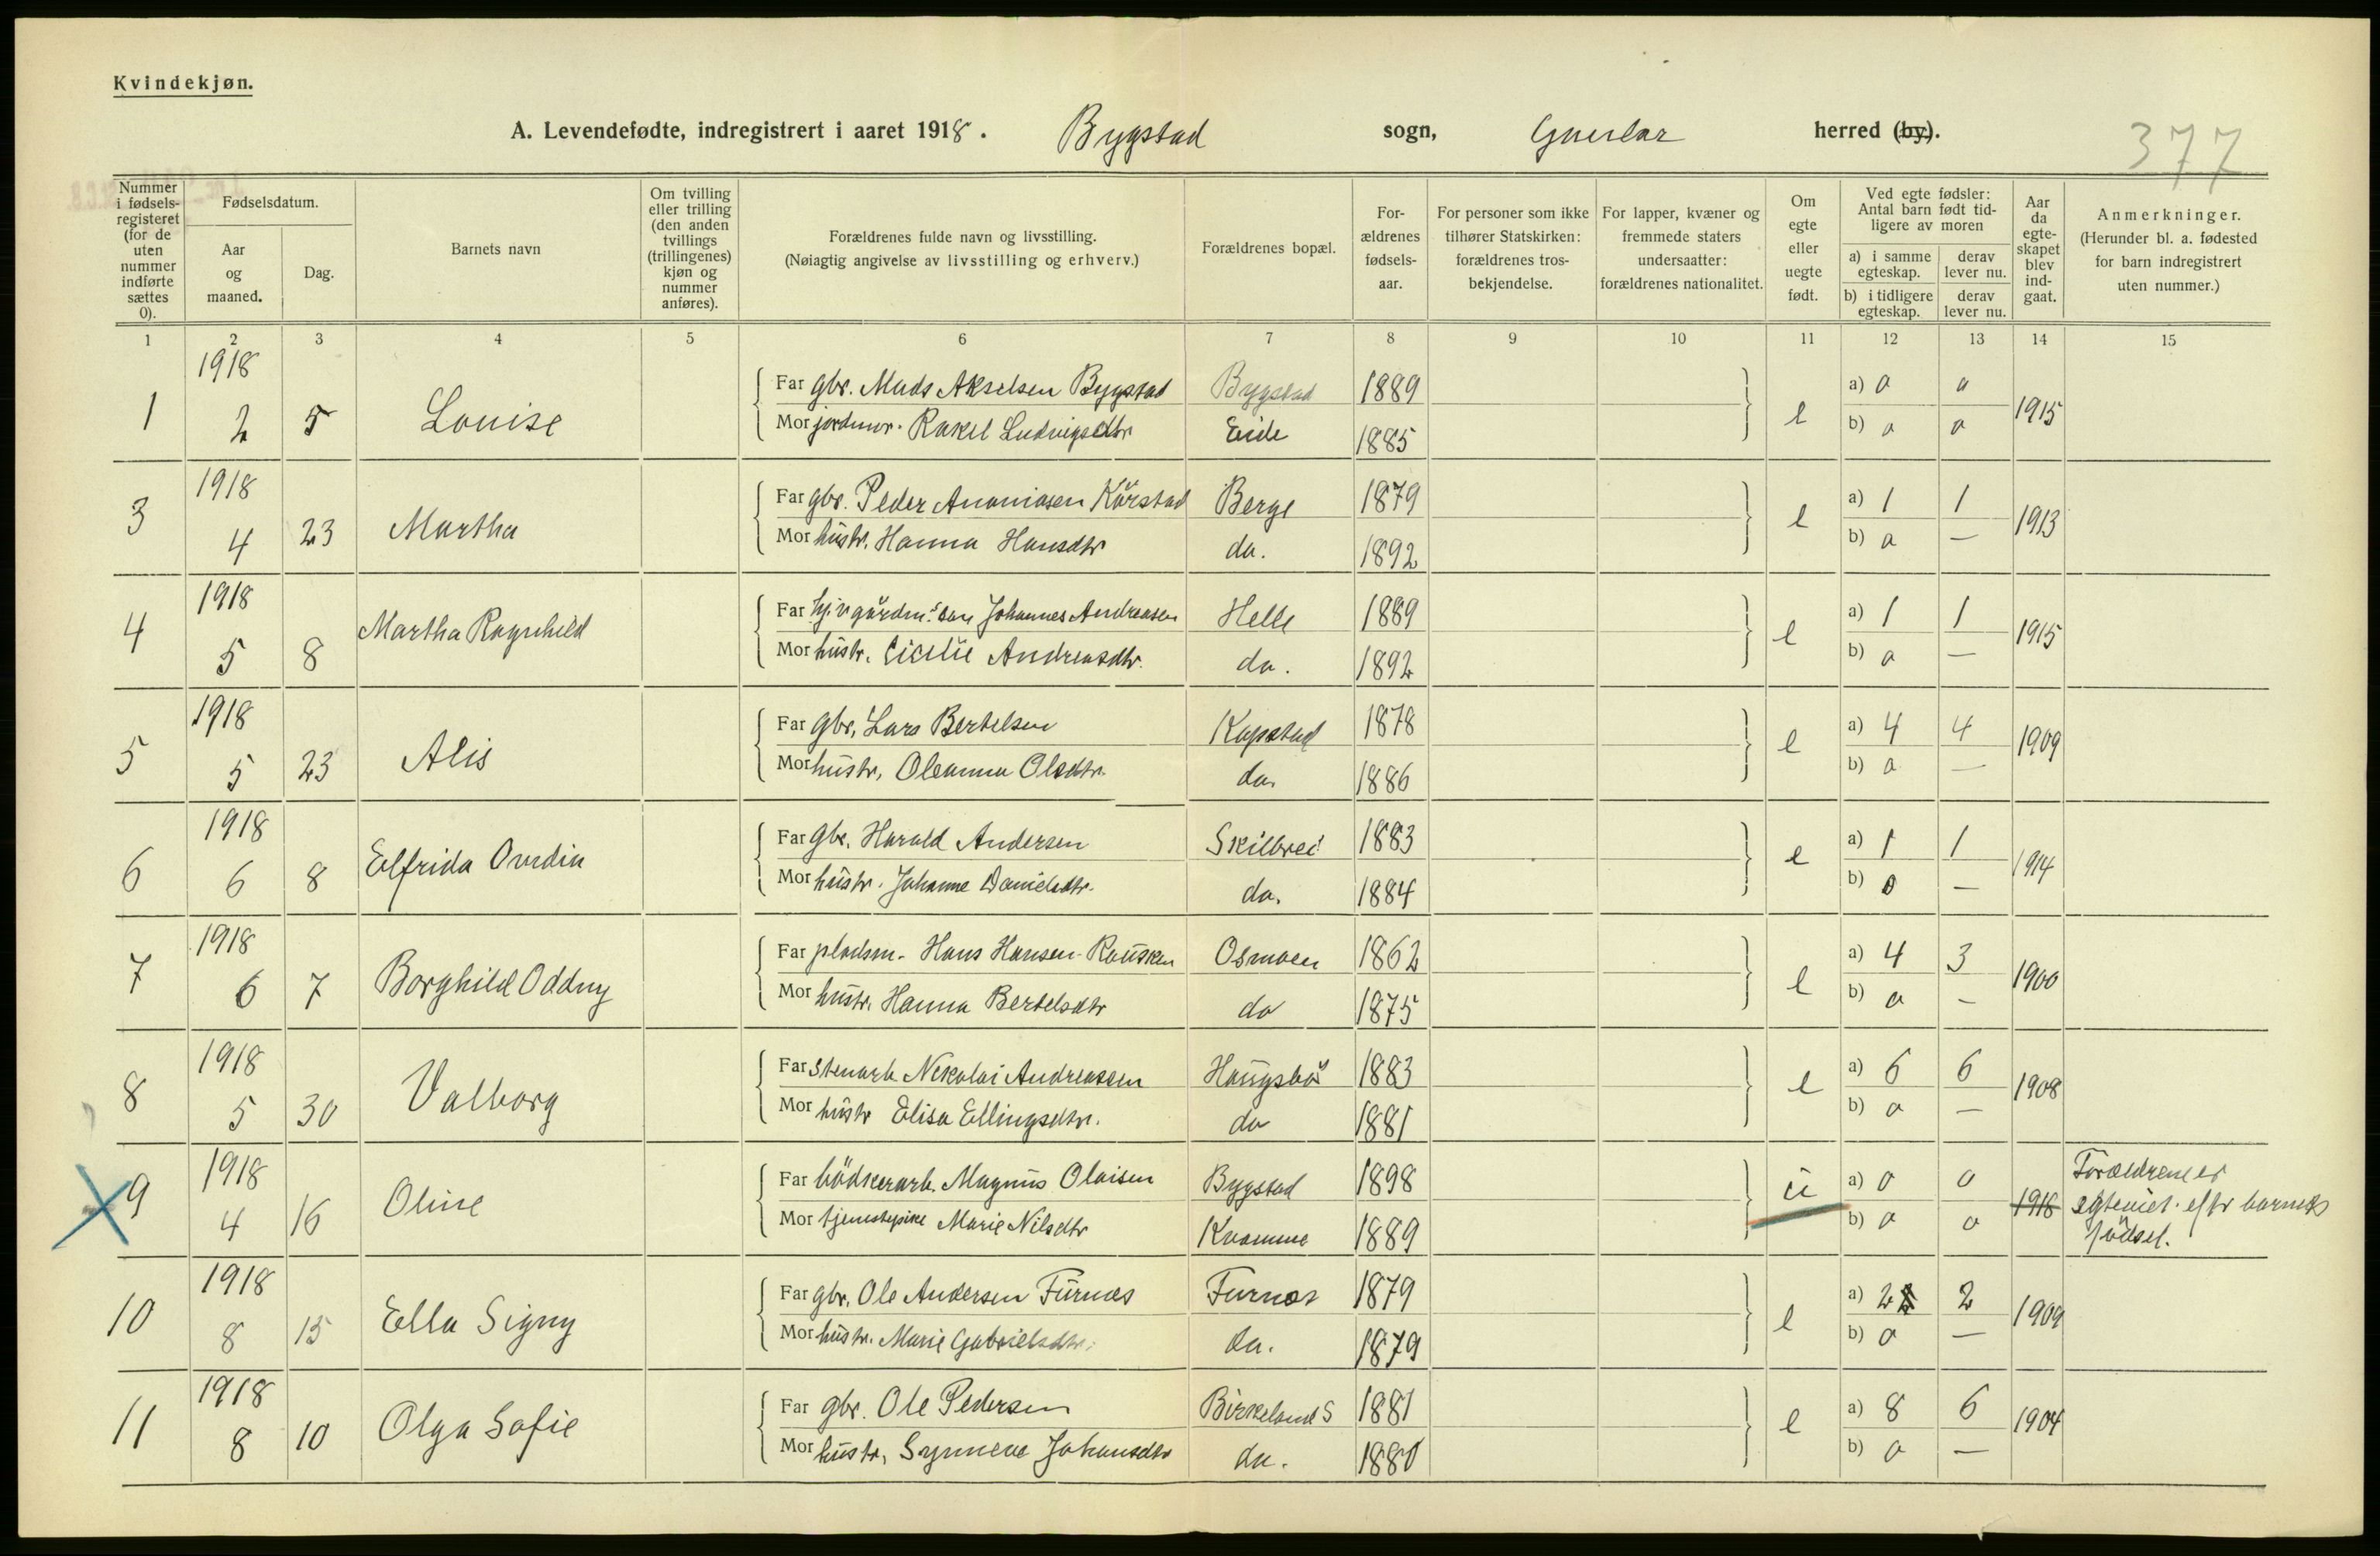 Kvindekjøn.
A. Levendefødte, indregistrert i aaret 1918. Bygstad sogn, Gaular herred (by).
377
Nummer i fødselsregisteret (for de uten nummer indførte sættes 0).
Fødselsdatum.
Aar og maaned.
Dag.
Barnets navn
Om tvilling eller trilling (den anden tvillings (trillingenes) kjøn og nummer anføres).
Forældrenes fulde navn og livsstilling.
(Nøiagtig angivelse av livsstilling og erhverv.)
Forældrenes bopæl.
Forældrenes fødselsaar.
For personer som ikke tilhører Statskirken: forældrenes trosbekjendelse.
For lapper, kvæner og fremmede staters undersaatter: forældrenes nationalitet.
Om egte eller uegte født.
Ved egte fødsler: Antal barn født tidligere av moren
a) i samme egteskap. derav lever nu.
b) i tidligere egteskap. derav lever nu.
Aar da egteskapet blev indgaat.
Anmerkninger.
(Herunder bl. a. fødested for barn indregistrert uten nummer.)
1 2 3 4 5 6 7 8 9 10 11 12 13 14 15
1918
Far gbr. Mads Akselsen Bygstad Bygstad 1889 a) 0 0
1 2 5 Louise e 1915
Mor jordmor. Rakel Ludvigsdtr Eide 1885 b) 0 0
1918
Far gbr. Peder Ananiasen Kårstad Berge 1879 a) 1 1
3 4 23 Martha e 1913
Mor hustr. Hanna Hansdtr do. 1892 b) 0 —
1918
Far hj.v gårdm. søn Johannes Andreasen Helle 1889 a) 1 1
4 5 8 Martha Ragnhild e 1915
Mor hustr. Cicilie Andreasdtr. do. 1892 b) 0 —
1918
Far gbr. Lars Bertelsen Kapstad 1878 a) 4 4
5 5 23 Alis e 1909
Mor hustr, Oleanna Olsdtr. do. 1886 b) 0 —
1918
Far gbr. Harald Andersen Skilbrei 1883 a) 1 1
6 6 8 Elfrida Ovedia e 1914
Mor hustr. Johanne Danielsdtr. do. 1884 b) 0 —
1918
Far pladsm. Hans Hansen Rausken Osmoen 1862 a) 4 3
7 6 7 Borghild Oddny e 1900
Mor hustr. Hanna Bertelsdtr do 1875 b) 0 —
1918
Far Stenarb. Nikolai Andreassen Haugsbø 1883 a) 6 6
8 5 30 Valborg e 1908
Mor hustr Elisa Ellingsdtr. do 1881 b) 0 —
1918
Far bödkerarb. Magnus Olaisen Bygstad 1898 a) 0 0
9 4 16 Oline u 1918 Forældrene er egteviet efter barnets födsel.
Mor tjenestepike Marie Nilsdtr Kvamme 1889 b) 0 0
1918
Far gbr. Ole Andersen Furnes Furnes 1879 a) 2 2
10 8 15 Ella Signy e 1909
Mor hustr. Marie Gabrielsdtr. do. 1879 b) 0 —
1918
Far gbr. Ole Pedersen Birkeland S 1881 a) 8 6
11 8 10 Olga Sofie e 1904
Mor hustr, Synneve Johansdtr do. 1880 b) 0 —